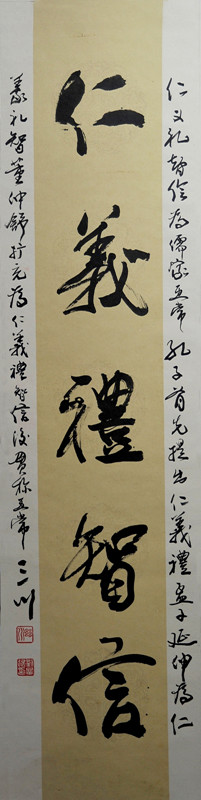 仁義禮智信
仁义礼智信为儒家五常孔子首先提出仁義禮孟子延伸为仁
義礼智董仲舒扩充为仁義禮智信后贯称五常 三川